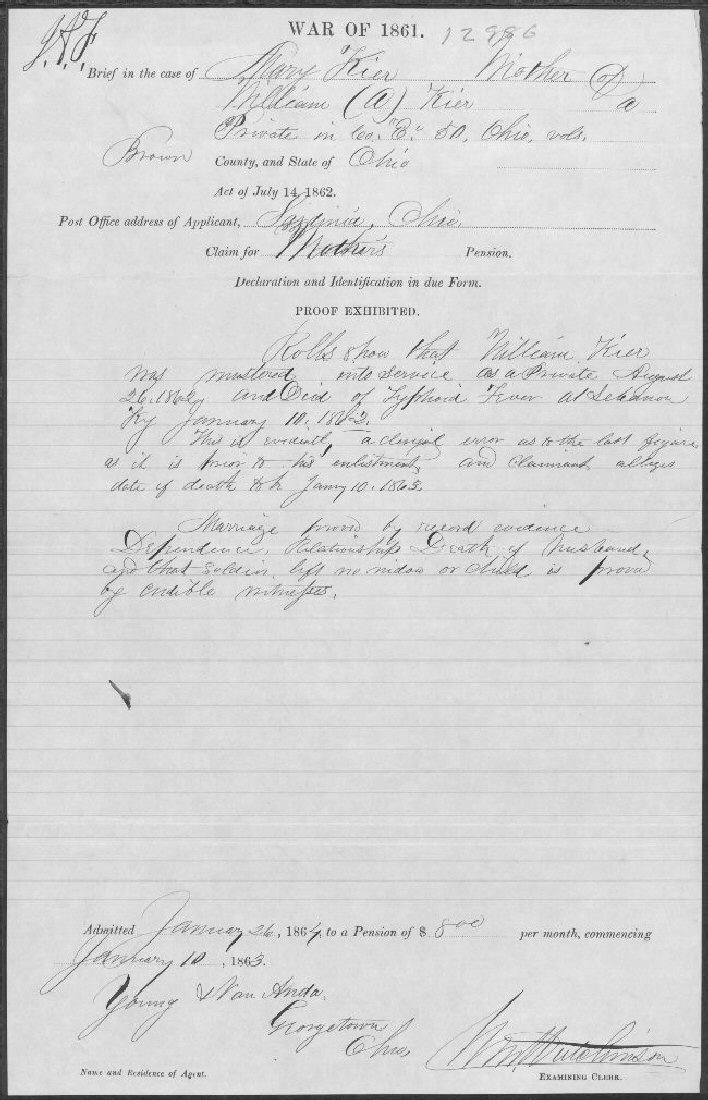 J.A.F.
WAR OF 1861. 12986
Brief in the case of Mary Kier Mother of
William (A) Kier a
Private in Co. "E." 50, Ohio, vols.
Brown County, and State of Ohio
Act of July 14, 1862.
Post Office address of Applicant, Sardinia, Ohio
Claim for Mothers Pension.
Declaration and Identification in due Form.
PROOF EXHIBITED.
Rolls show that William Kier
was mustered into service as a Private August
26, 1862, and Died of Typhoid Fever at Lebanon
Ky January 10, 1862.
This is evidently a clerical error as to the last figure
as it is prior to his enlistment, and claimant alleges
date of death to be Jany 10, 1863.
Marriage proved by record evidence
Dependence, Relationship, Death of husband,
and that soldier left no widow or child is proved
by credible witnesses.
Admitted January 26, 1864, to a Pension of $ 8 00 per month, commencing
January 10, 1863.
Young & Van Anda.
Georgetown
Ohio
Wm Hutchinson
Name and Residence of Agent. EXAMINING CLERK.